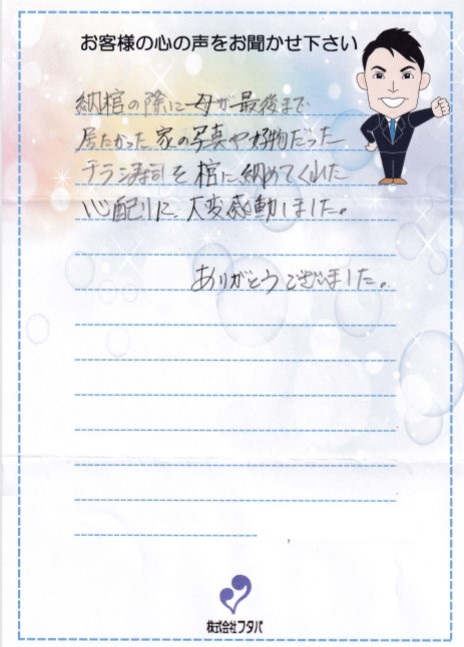 お客様の心の声をお聞かせ下さい
納棺の際に母が最後まで
居たかった家の写真や好物だった
チラシ寿司を棺に納めてくれた
心配りに、大変感動しました。
ありがとうございました。
株式会社フタバ